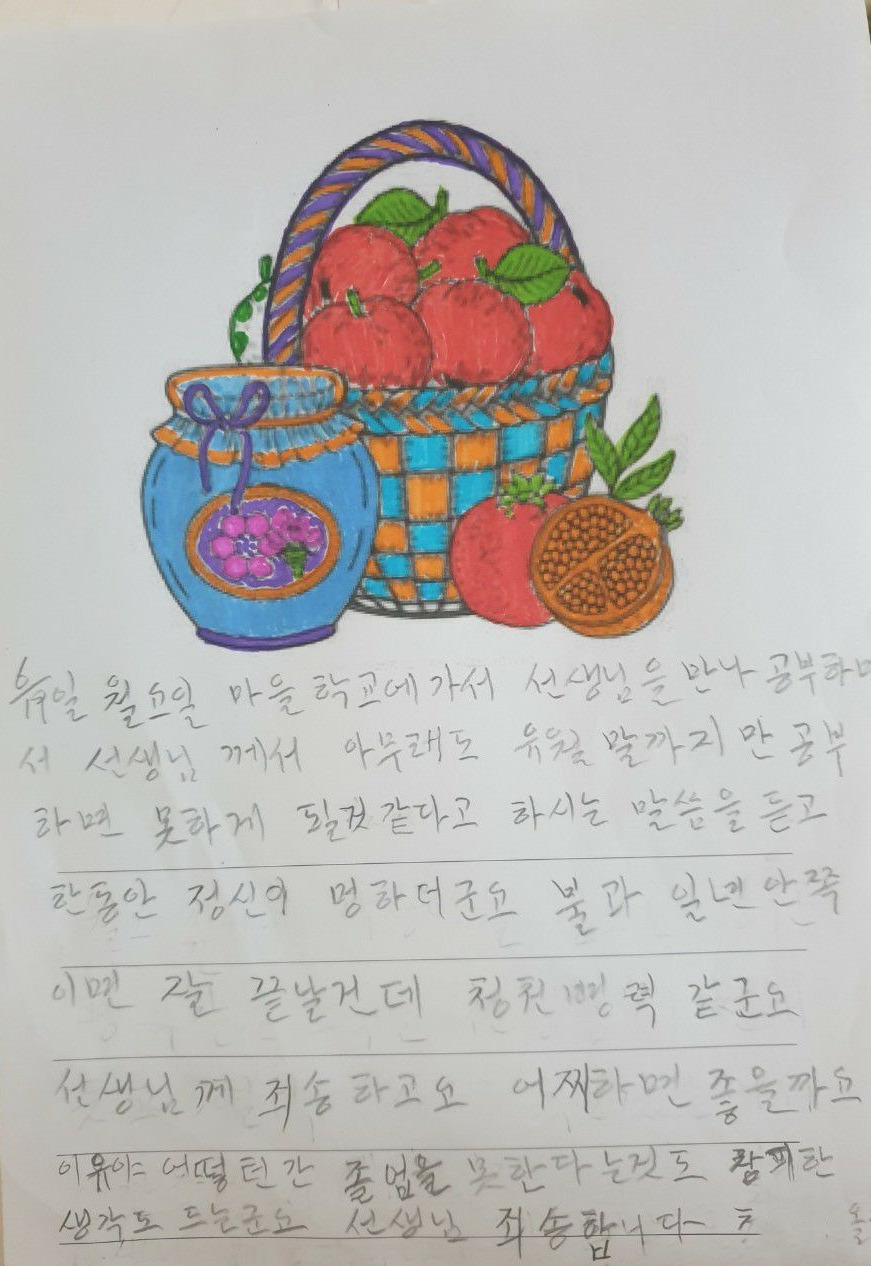 육일 월요일 마을 학교에 가서 선생님을 만나 공부하며
서 선생님 께서 아무래도 유월 말까지 만 공부
하면 못하게 될것 같다고 하시는 말씀을 듣고
한동안 정신이 멍하더군요 불과 일년 안쪽
이면 잘 끝날건데 청천 병력 같군요
선생님께 죄송하고요 어찌하면 좋을까요
이유야 어떻턴간 졸업을 못한다는것도 참피한
생각도 드는군요 선생님 죄송합니다